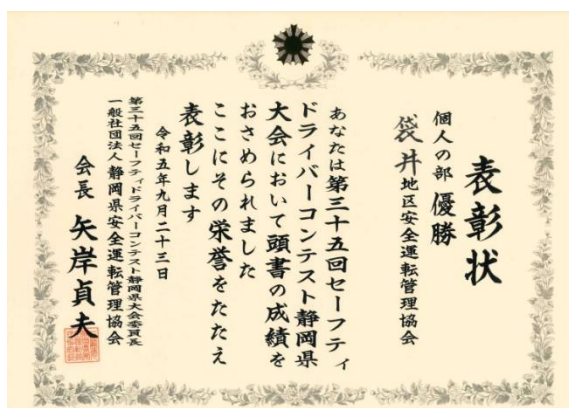 表彰状
個人の部 優勝
袋井地区安全運転管理協会
あなたは第三十五回セーフティ
ドライバーコンテスト静岡県
大会において頭書の成績を
おさめられました
ここにその栄誉をたたえ
表彰します
令和五年九月二十三日
第三十五回セーフティドライバーコンテスト静岡県大会委員長
一般社団法人静岡県安全運転管理協会
会長 矢岸貞夫